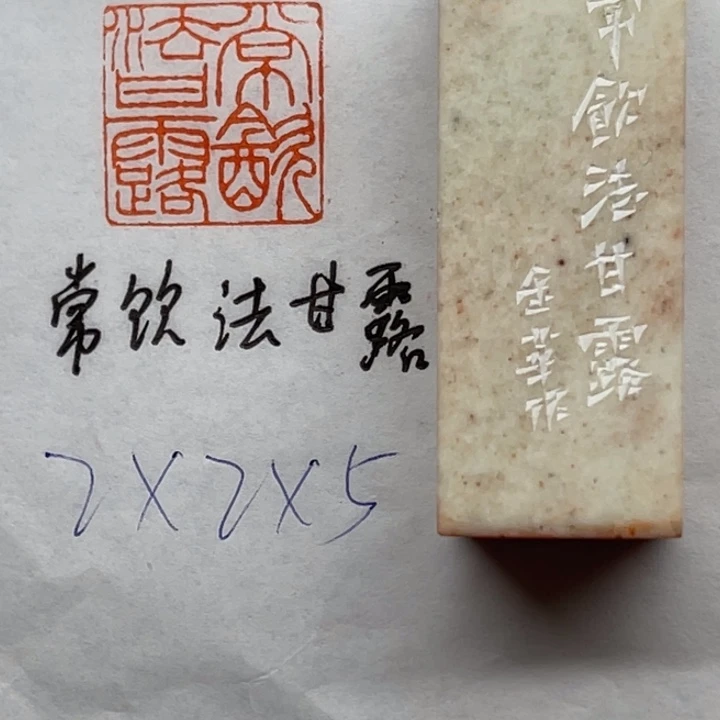 常飲法甘露
常饮法甘露
2×2×5
常飲法甘露
金華作